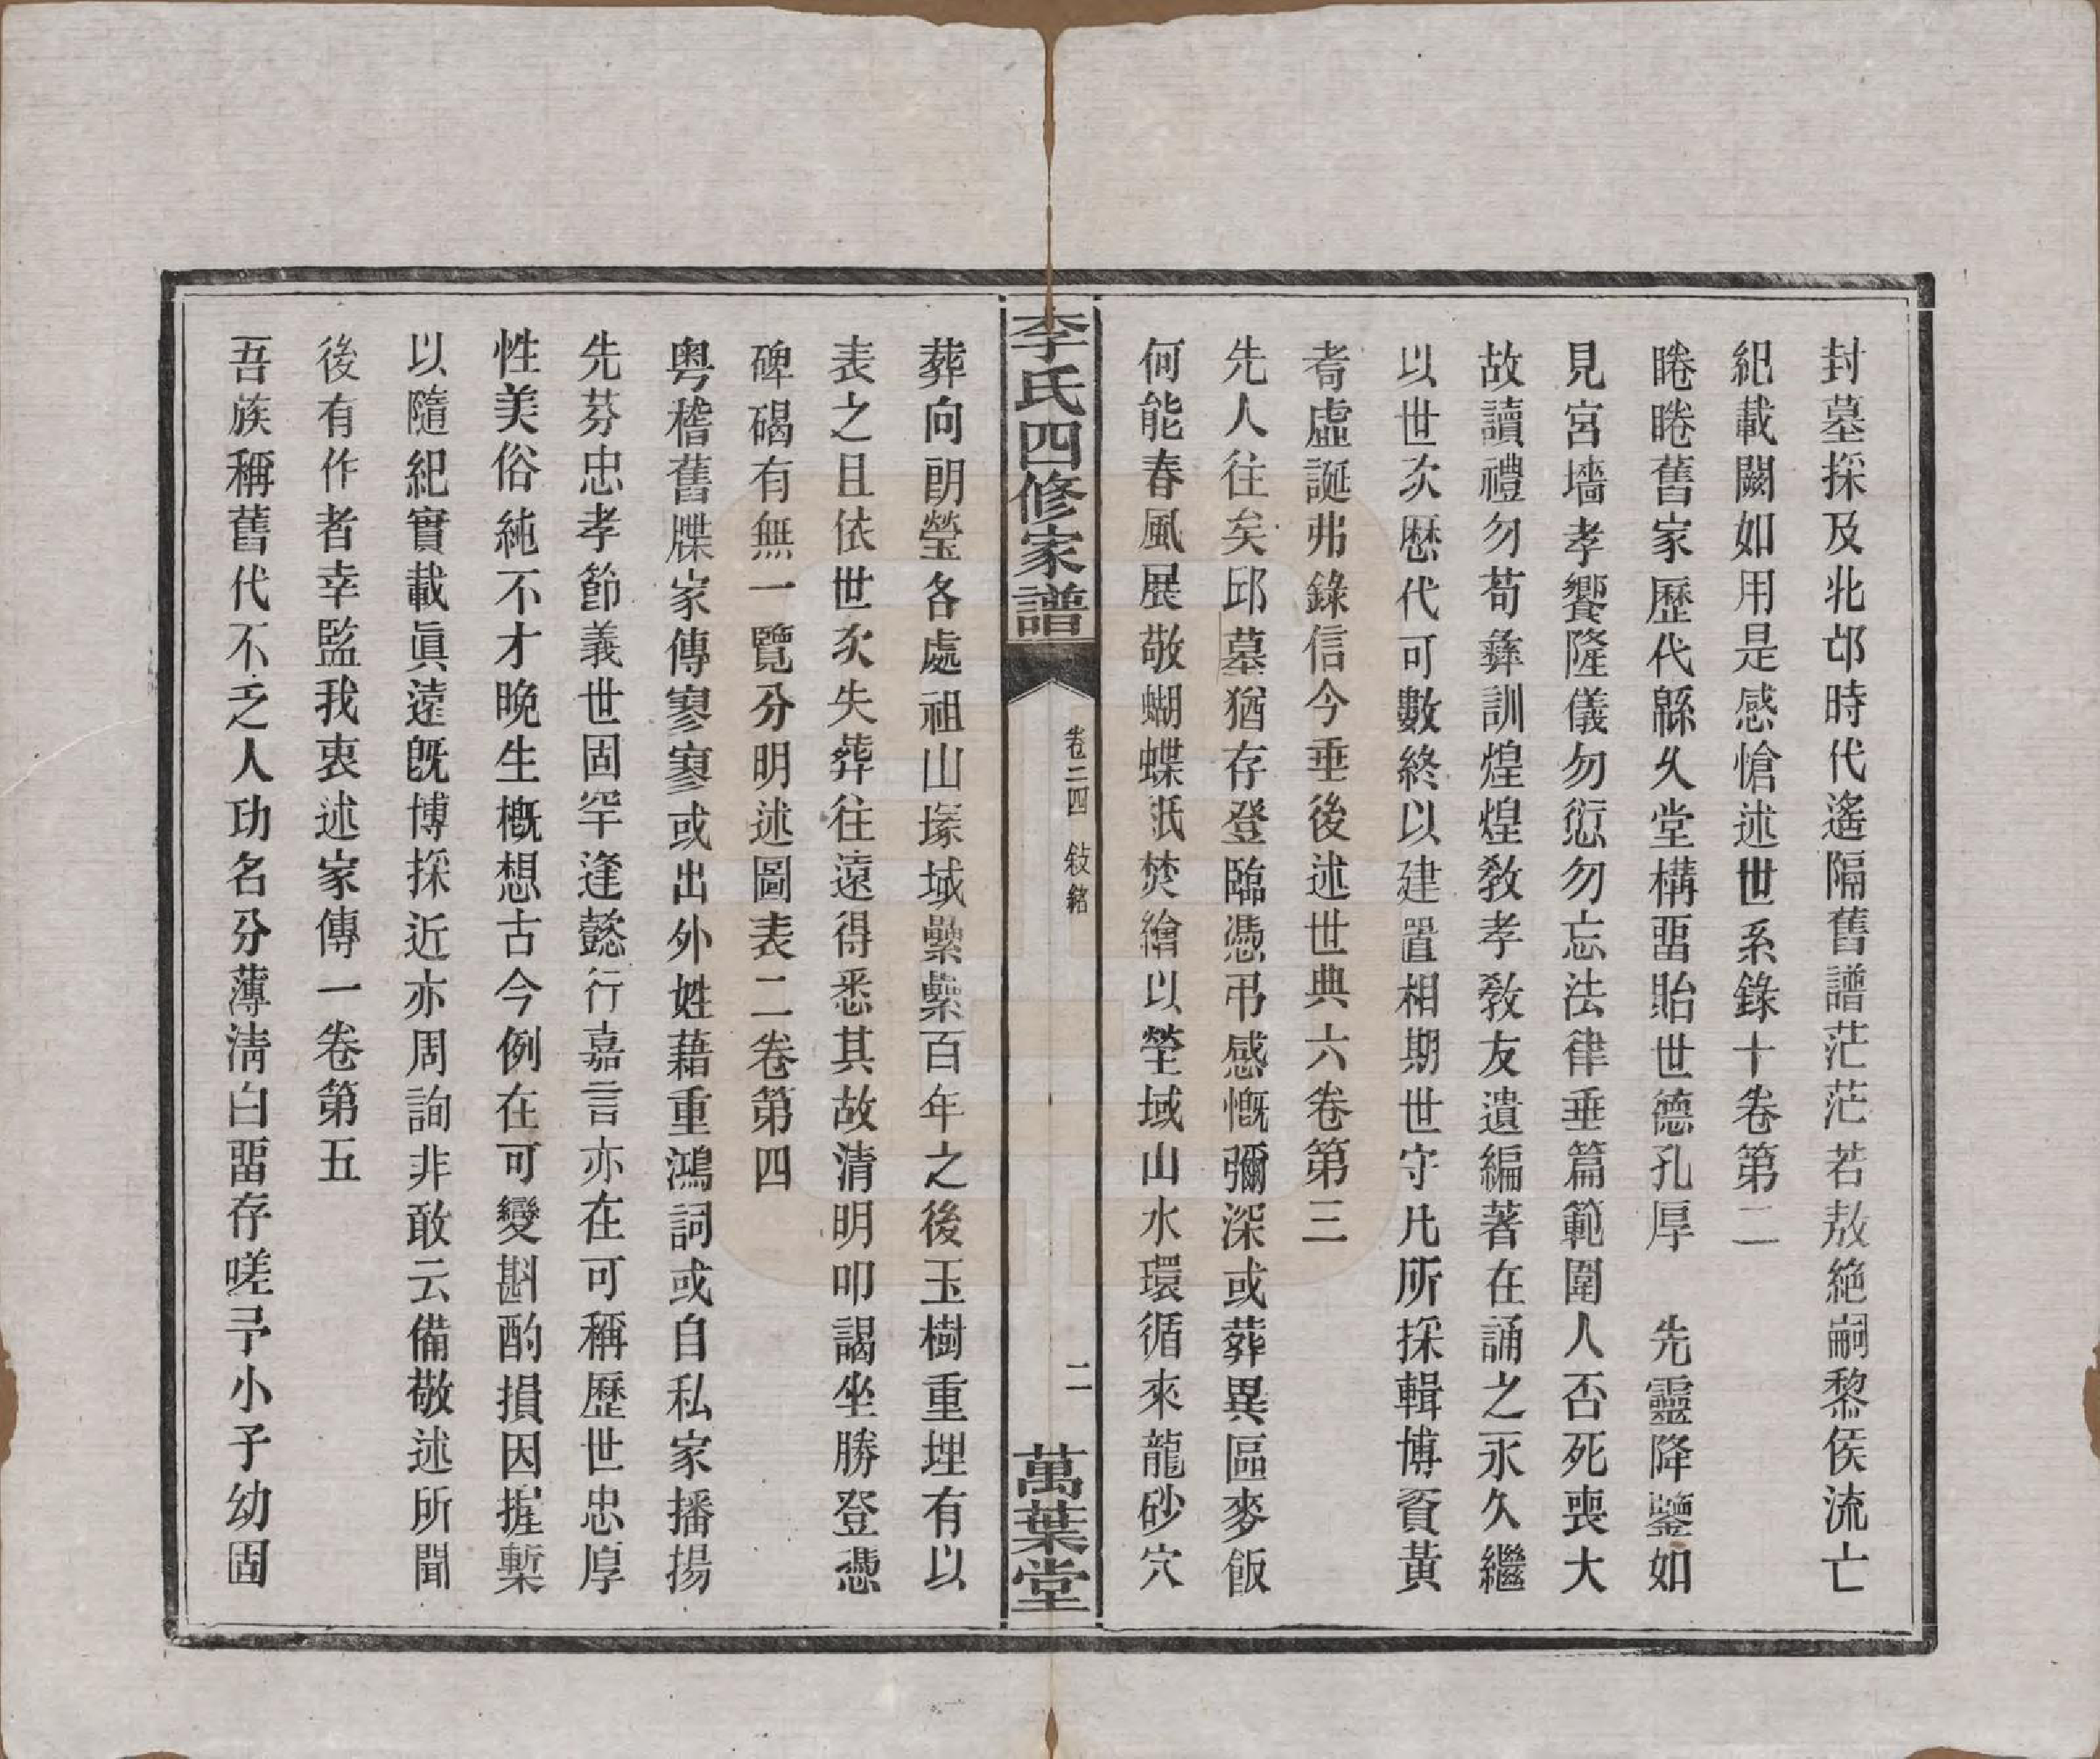 封墓採及北邙時代遙隔舊譜茫茫若敖絶嗣黎侯流亡
紀載闕如用是感愴述世系錄十卷第二
睠睠舊家歷代緜久堂構畱貽世德孔厚　先靈降鑒如
見宮墻孝饗隆儀勿愆勿忘法律垂篇範圍人否死喪大
故讀禮勿苟彝訓煌煌敎孝敎友遺編著在誦之永久繼
以世次歷代可數終以建置相期世守凡所採輯博資黃
耈虛誕弗錄信今垂後述世典六卷第三
先人往矣邱墓猶存登臨憑弔感慨彌深或葬異區麥飯
何能春風展敬蝴蝶紙焚繪以塋域山水環循來龍砂穴
李氏四修家譜
卷二四　敍銘
二
萬葉堂
葬向朗瑩各處祖山塚域纍纍百年之後玉樹重埋有以
表之且依世次失葬往遠得悉其故清明叩謁坐勝登憑
碑碣有無一覽分明述圖表二卷第四
粤稽舊牒家傳寥寥或出外姓藉重鴻詞或自私家播揚
先芬忠孝節義世固罕逢懿行嘉言亦在可稱歷世忠厚
性美俗純不才晚生槪想古今例在可變斟酌損因握槧
以隨紀實載眞遠旣博採近亦周詢非敢云備敬述所聞
後有作者幸監我衷述家傳一卷第五
吾族稱舊代不乏人功名分薄淸白畱存嗟予小子幼固